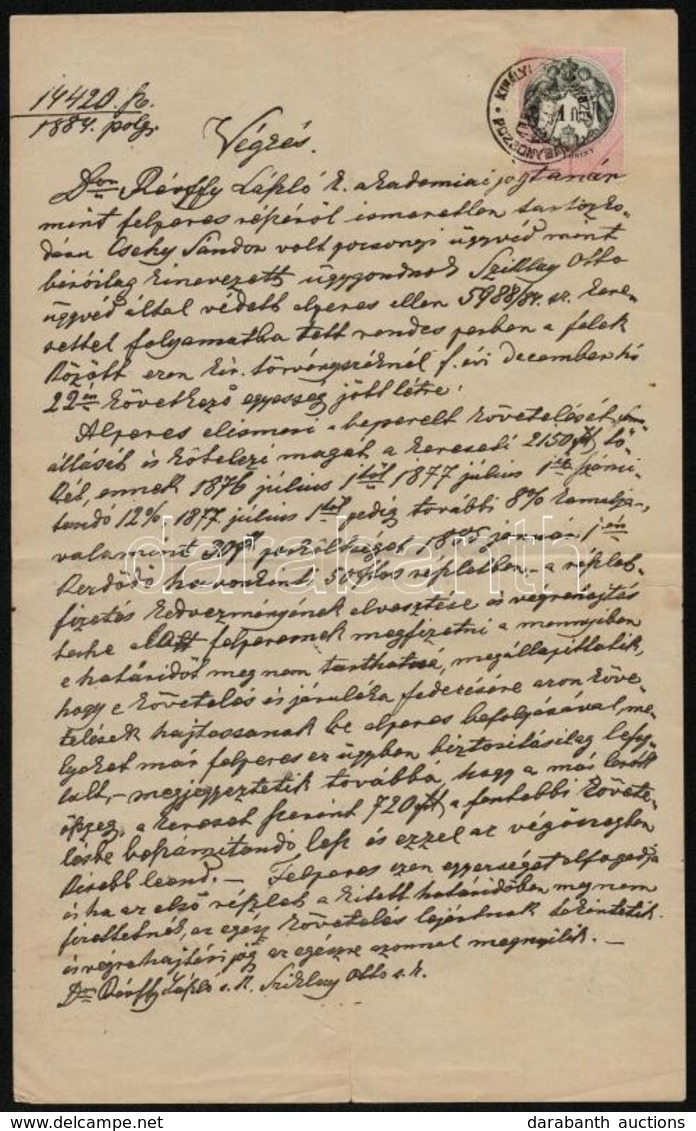 14420. sz.
1884. polg.
Végzés.
Dr. Révffy László k. akademiai jogtanár
mint felperes részéről ismeretlen tartózko-
dásu Cseky Sandor volt pozsonyi ügyvéd mint
biróilag kinevezett ügygondnok Sziklay Otto
ügyvéd által védett alperes ellen 5988/84. sz. kere-
settel folyamatba tett rendes perben a felek
között ezen kir. törvényszéknél f. évi december hó
22én következő egyesség jött létre:
Alperes elismeri a beperelt követelését
állását és kötelezi magát a kereseti 2150 ft tő-
két, ennek 1876 július 1től 1877 július 1ig számi-
tandó 12% 1877 július 1től pedig további 8% kamatja,
valamint 30 ft perköltséget 1885 január 1én
kezdődő havonkinti 50 ftos részletben, - a részlet-
fizetés kedvezményének elvesztése és végrehajtás
terhe alatt felperesnek megfizetni a mennyiben
e határidőt meg nem tarthatná, megállapittatik,
hogy e követelés és járuléka fedezésére azon köve-
telések hajtassanak be alperes befolyásával, me-
lyeket már felperes ez ügyben biztositásilag lefog-
lalt, - megjegyeztetik továbbá, hogy a már lerótt
összeg, a kereset szerint 720 ft a fentebbi követe-
lésbe beszámitandó lesz és ezzel az végösszegben
kisebb leend. - Felperes ezen egyességet elfogadja
és ha az első részlet a kitett határidőben meg nem
fizettetnék, az egész követelés lejártnak tekintetik
és végrehajtási jog az egészre azonnal megnyilik. -
Dr. Révffy László s. k. Sziklay Otto s. k.
KIRÁLYI
POZSONY
1 ft
darabanth
www.darabanth.com
darabanth auctions